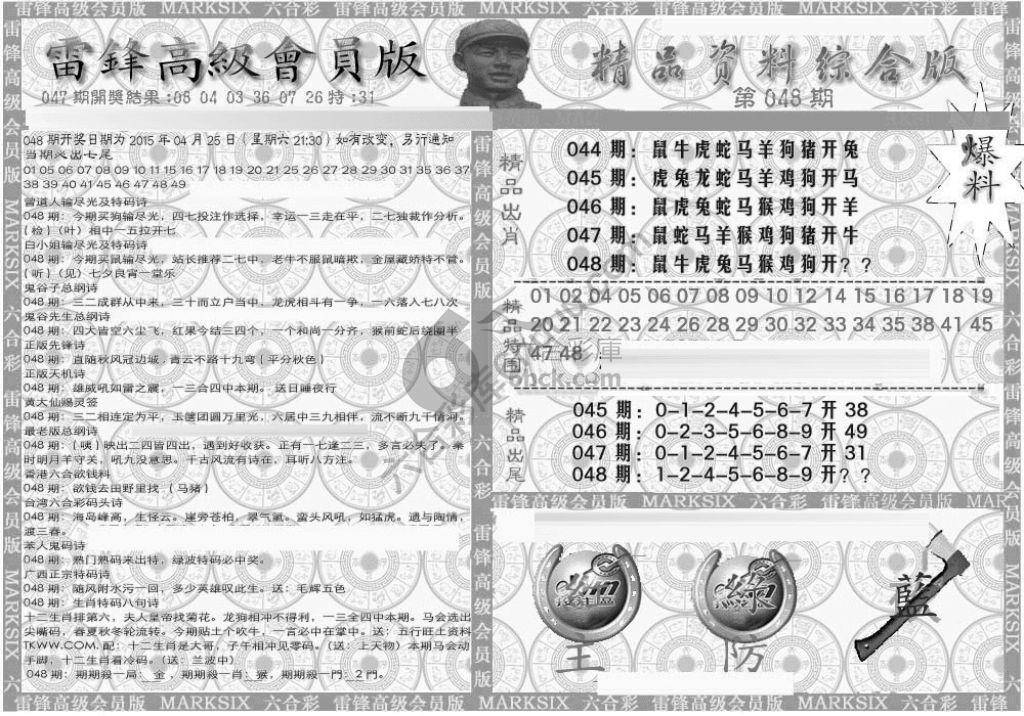 雷锋高级会员版 MARKSIX 六合彩 雷锋高级会员版 MARKSIX 六合彩 雷锋高级会员版 MARKSIX 六合彩 雷锋
雷鋒高級會員版
精品资料综合版
047 期開獎結果:08 04 03 36 07 26 特:31
第 048 期
048 期开奖日期为 2015 年 04 月 25 日（星期六 21:30）如有改变，另行通知
当期必出七尾
01 05 06 07 08 09 10 11 15 16 17 18 19 20 21 25 26 27 28 29 30 31 35 36 37
38 39 40 41 45 46 47 48 49
曾道人输尽光及特码诗
048 期：今期买狗输尽光，四七投注作选择，幸运一三走在平，二七独裁作分析。
{检}（叶）相中一五拉开七
白小姐输尽光及特码诗
048 期：今期买鼠输尽光，站长推荐二七中，老牛不服鼠暗欺，金屋藏娇特不管。
{听}（见）七夕良宵一堂乐
鬼谷子总纲诗
048 期：三二成群从中来，三十而立户当中，龙虎相斗有一争，一六落入七八次
鬼谷先生总纲诗
048 期：四大皆空六尘飞，红果今结三四个，一个和尚一分齐，猴前蛇后绕圈半
正版先锋诗
048 期：直随秋风冠边城，青云不路十九弯{平分秋色}
正版天机诗
048 期：雄威吼如雷之震，一三合四中本期。送日睡夜行
黄大仙赐灵签
048 期：三二相连定为平，玉箧团圆万里光，六居中三九相伴，流不断九千情河。
最老版总纲诗
048 期：{咦}映出二四皆四出，遇到好收获。正有一七逢二三，多言必失了。秦
时明月羊守关，吼九没意思。千古风流有诗在，耳听八方注。
香港六合欲钱料
048 期：欲钱去田野里找 {马猪}
台湾六合彩码头诗
048 期：海岛峰高，生怪云。崖旁苍柏，翠气氤。蛮头风吼，如猛虎。遗与陶情，
渡三春。
本人鬼码诗
048 期：熟门熟码来出特，绿波特码必中奖。
广西正宗特码诗
048 期：随风附水污一回，多少英雄叹此生。送：毛辉五色
048 期：生肖特码八句诗
十二生肖排第六，夫人皇帝找菊花。龙狗相冲不得利，一三全四中本期。马会选出
尖嘴码，春夏秋冬轮流转。今期贴士个吹牛，一言必中在掌中。送：五行旺土资料
TKWW.COM. 配：十二生肖是大哥，子午相冲见零码。（送：上天物）本期马会动
手脚，十二生肖看冷码。（送：兰波中）
048 期：期期殺一局：金，期期殺一肖：猴，期期殺一門：2 門。
精品出肖
044 期：鼠牛虎蛇马羊狗猪开兔
045 期：虎兔龙蛇马羊鸡狗开马
046 期：鼠虎兔蛇马猴鸡狗开羊
047 期：鼠蛇马羊猴鸡狗猪开牛
048 期：鼠牛虎兔马猴鸡狗开？？
爆料
精品特围
01 02 04 05 06 07 08 09 10 12 14 16 17 18 19
20 21 22 23 24 26 28 29 30 32 33 34 35 38 41 45
47 48
6hck.com
精品出尾
045 期：0-1-2-4-5-6-7 开 38
046 期：0-2-3-5-6-8-9 开 49
047 期：0-1-2-4-5-6-7 开 31
048 期：1-2-4-5-6-8-9 开？？
雷锋高级会员版 MARKSIX 六合彩 雷锋高级会员版
綠
藍
主
防
雷锋高级会员版 MARKSIX 六合彩 雷锋高级会员版 MARKSIX 六合彩 雷锋高级会员版 MARKSIX 六合彩 雷锋